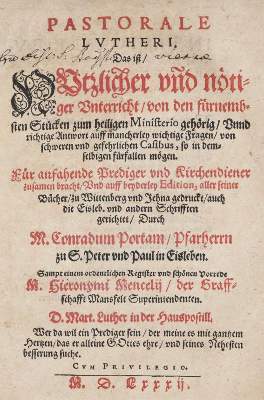 PASTORALE
LVTHERI,
Das ist/
NUtzlicher vnd nöti-
ger Vnterricht/ von den fürnemb-
sten Stücken zum heiligen Ministerio gehörig/ Vnnd
richtige Antwort auff mancherley wichtige Fragen/ von
schweren vnd gefehrlichen Casibus, so in dem-
selbigen fürfallen mögen.
Für anfahende Prediger vnd Kirchendiener
zusamen bracht/ Vnd auff beyderley Edition, aller seiner
Bücher/ zu Wittenberg vnd Jehna gedruckt/ auch
die Eisleb. vnd andern Schrifften
gerichtet/ Durch
M. Conradum Portam/ Pfarherrn
zu S. Peter vnd Paul in Eisleben.
Sampt einem ordenlichen Register vnd schönen Vorrede
M. Hieronymi Mencelij/ der Graff-
schafft Mansfelt Superintendenten.
D. Mart. Luther in der Hauspostill.
Wer da wil ein Prediger sein/ der meine es mit gantzem
Hertzen/ das er alleine Gottes ehre/ vnd seines Nehesten
besserung suche.
CVM PRIVILEGIO.
M. D. LXXXij.